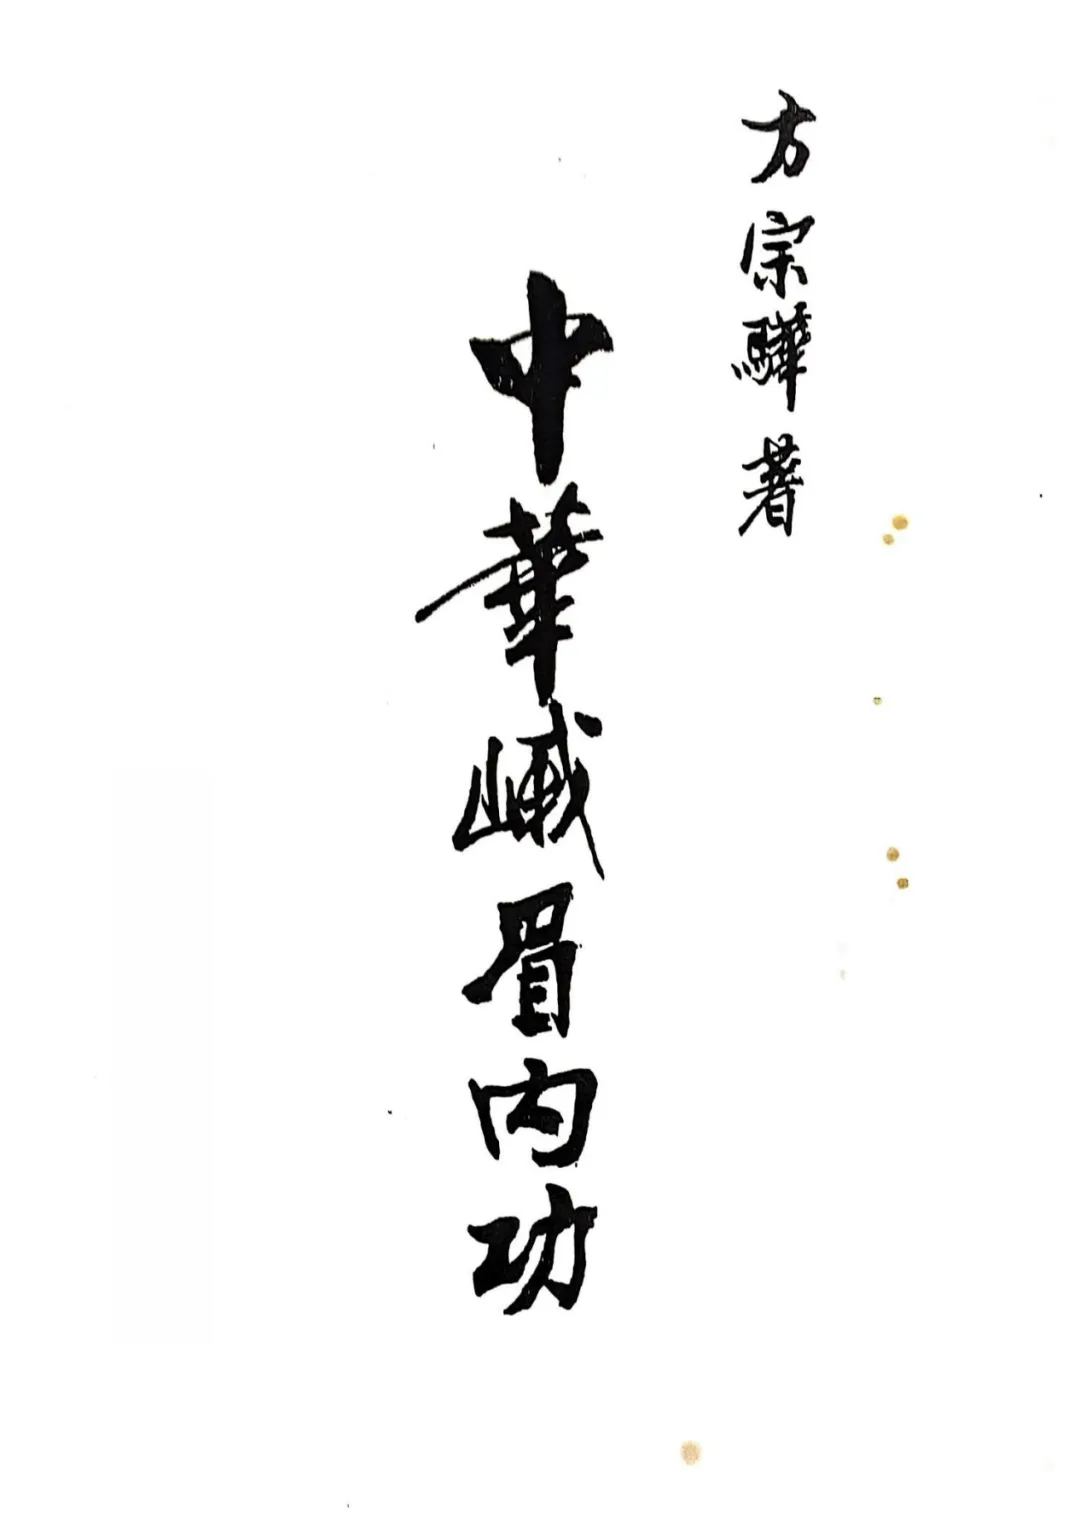 方宗驊著
中華峨眉内功